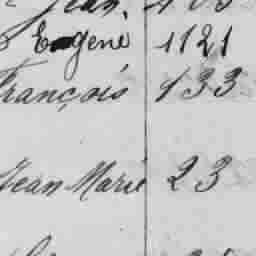 Jean.
Eugene 1121
François 133
Jean Marie 23